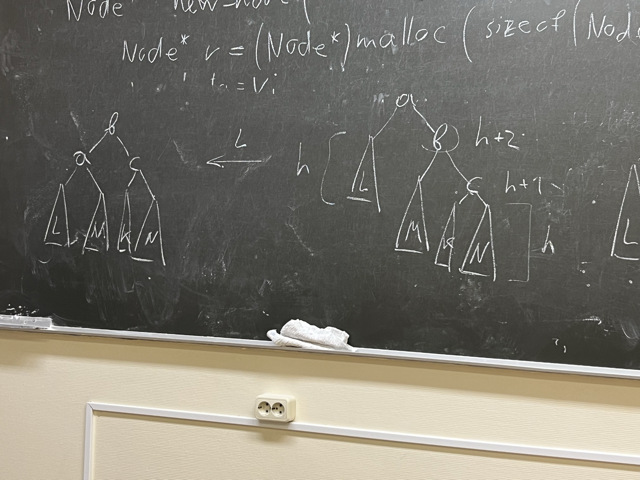 Node* new_node(
Node* r = (Node*)malloc(sizeof(Node
= v;
b
a c
L M K N
L
h
a
b h+2
c h+1
L M K N
h
L